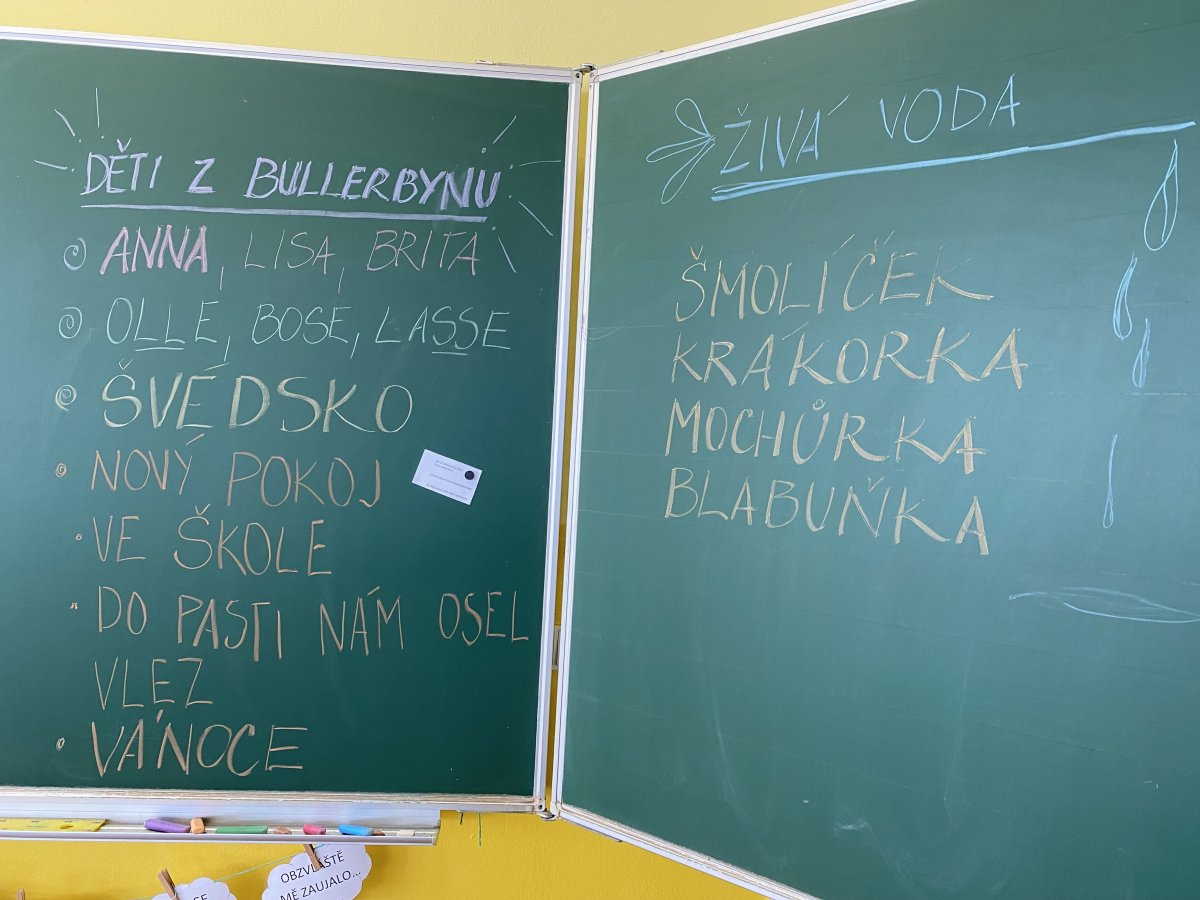 DĚTI Z BULLERBYNU
ANNA, LISA, BRITA
OLLE, BOSE, LASSE
ŠVÉDSKO
NOVÝ POKOJ
VE ŠKOLE
DO PASTI NÁM OSEL
VLEZ
VÁNOCE
ŽIVÁ VODA
ŠMOLÍČEK
KRÁKORKA
MOCHŮRKA
BLABUŇKA
OBZVLÁŠTĚ
MĚ ZAUJALO...